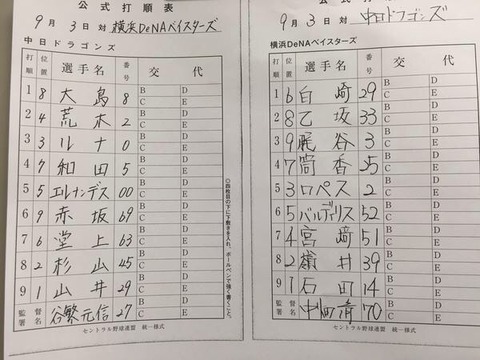 公式打順表
9月3日対 横浜DeNAベイスターズ
中日ドラゴンズ
打順 位置 選手名 番号 交代
1 8 大島 8 B D C E
2 4 荒木 2 B D C E
3 3 ルナ 0 B D C E
4 7 和田 5 B D C E
5 5 エルナンデス 00 B D C E
6 9 赤坂 69 B D C E
7 6 堂上 63 B D C E
8 2 杉山 45 B D C E
9 1 山井 29 B D C E
監督 署名 谷繁元信 27
セントラル野球連盟 統一様式
○四枚目の下に下敷きを入れ、ボールペンで強く書くこと。
公式打順表
9月3日対 中日ドラゴンズ
横浜DeNAベイスターズ
打順 位置 選手名 番号 交代
1 6 白崎 29 B D C E
2 8 乙坂 33 B D C E
3 9 梶谷 3 B D C E
4 7 筒香 25 B D C E
5 3 ロペス 2 B D C E
6 5 バルディリス 52 B D C E
7 4 宮﨑 51 B D C E
8 2 嶺井 39 B D C E
9 1 石田 14 B D C E
監督 署名 中畑清 70
セントラル野球連盟 統一様式